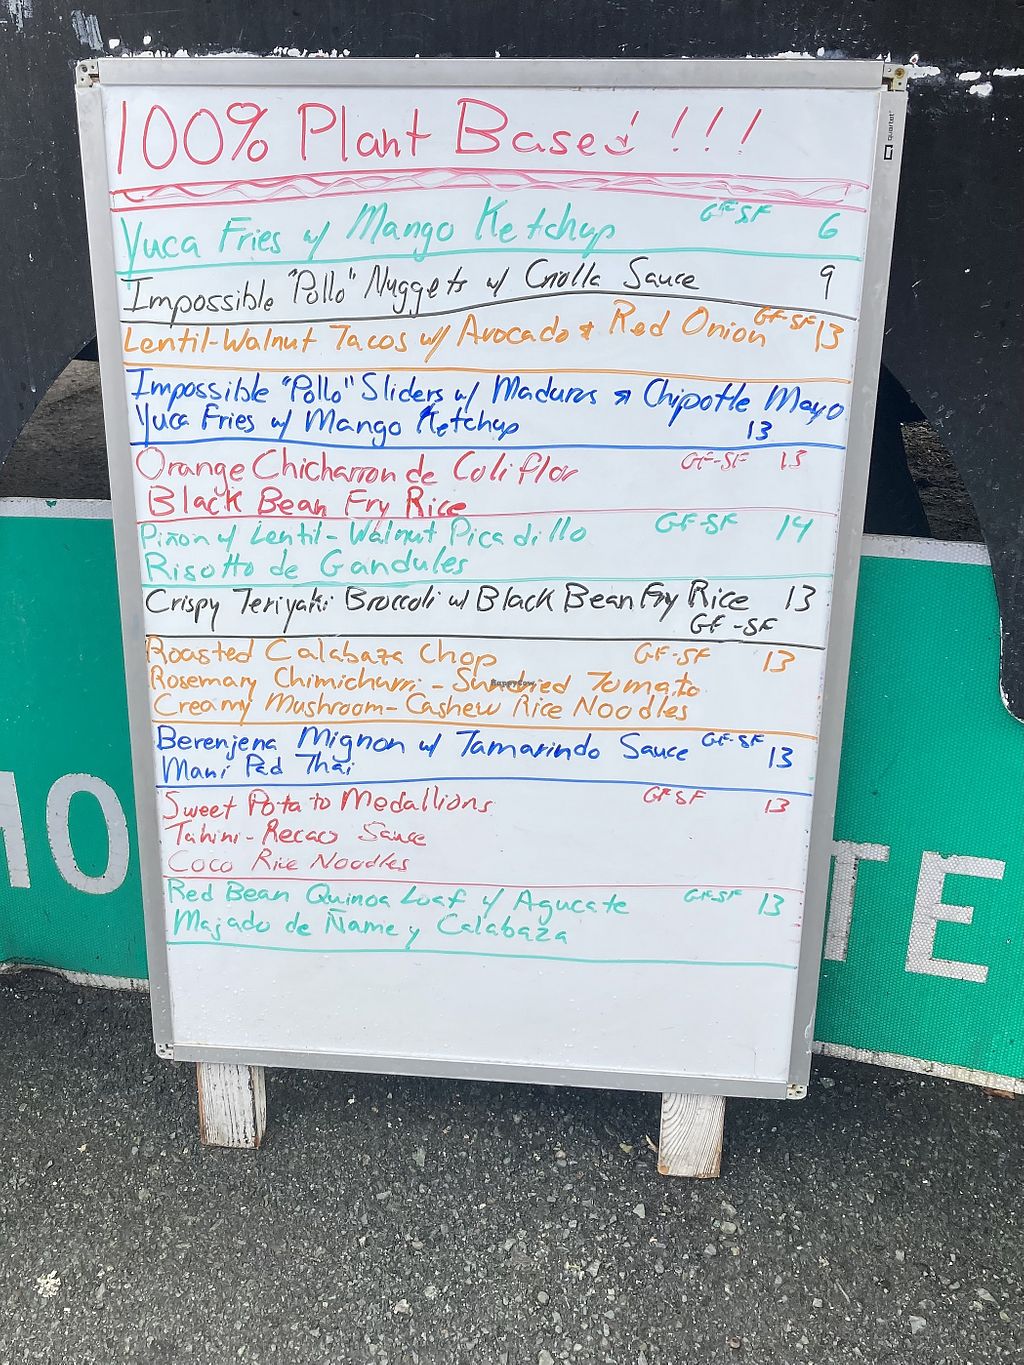 100% Plant Based !!!
quartet
Yuca Fries w/ Mango Ketchup GF-SF 6
Impossible "Pollo" Nuggets w/ Criolla Sauce 9
Lentil-Walnut Tacos w/ Avocado & Red Onion GF-SF 13
Impossible "Pollo" Sliders w/ Maduros & Chipotle Mayo
Yuca Fries w/ Mango Ketchup 13
Orange Chicharron de Coliflor GF-SF 13
Black Bean Fry Rice
Piñon w/ Lentil-Walnut Picadillo GF-SF 14
Risotto de Gandules
Crispy Teriyaki Broccoli w/ Black Bean Fry Rice 13
GF-SF
Roasted Calabaza Chop GF-SF 13
Rosemary Chimichurri - Sundried Tomato
Creamy Mushroom-Cashew Rice Noodles
HappyCow
Berenjena Mignon w/ Tamarindo Sauce GF-SF 13
Mani Pad Thai
Sweet Potato Medallions GF-SF 13
Tahini-Recao Sauce
Coco Rice Noodles
Red Bean Quinoa Loaf w/ Agucate GF-SF 13
Majado de Ñame y Calabaza